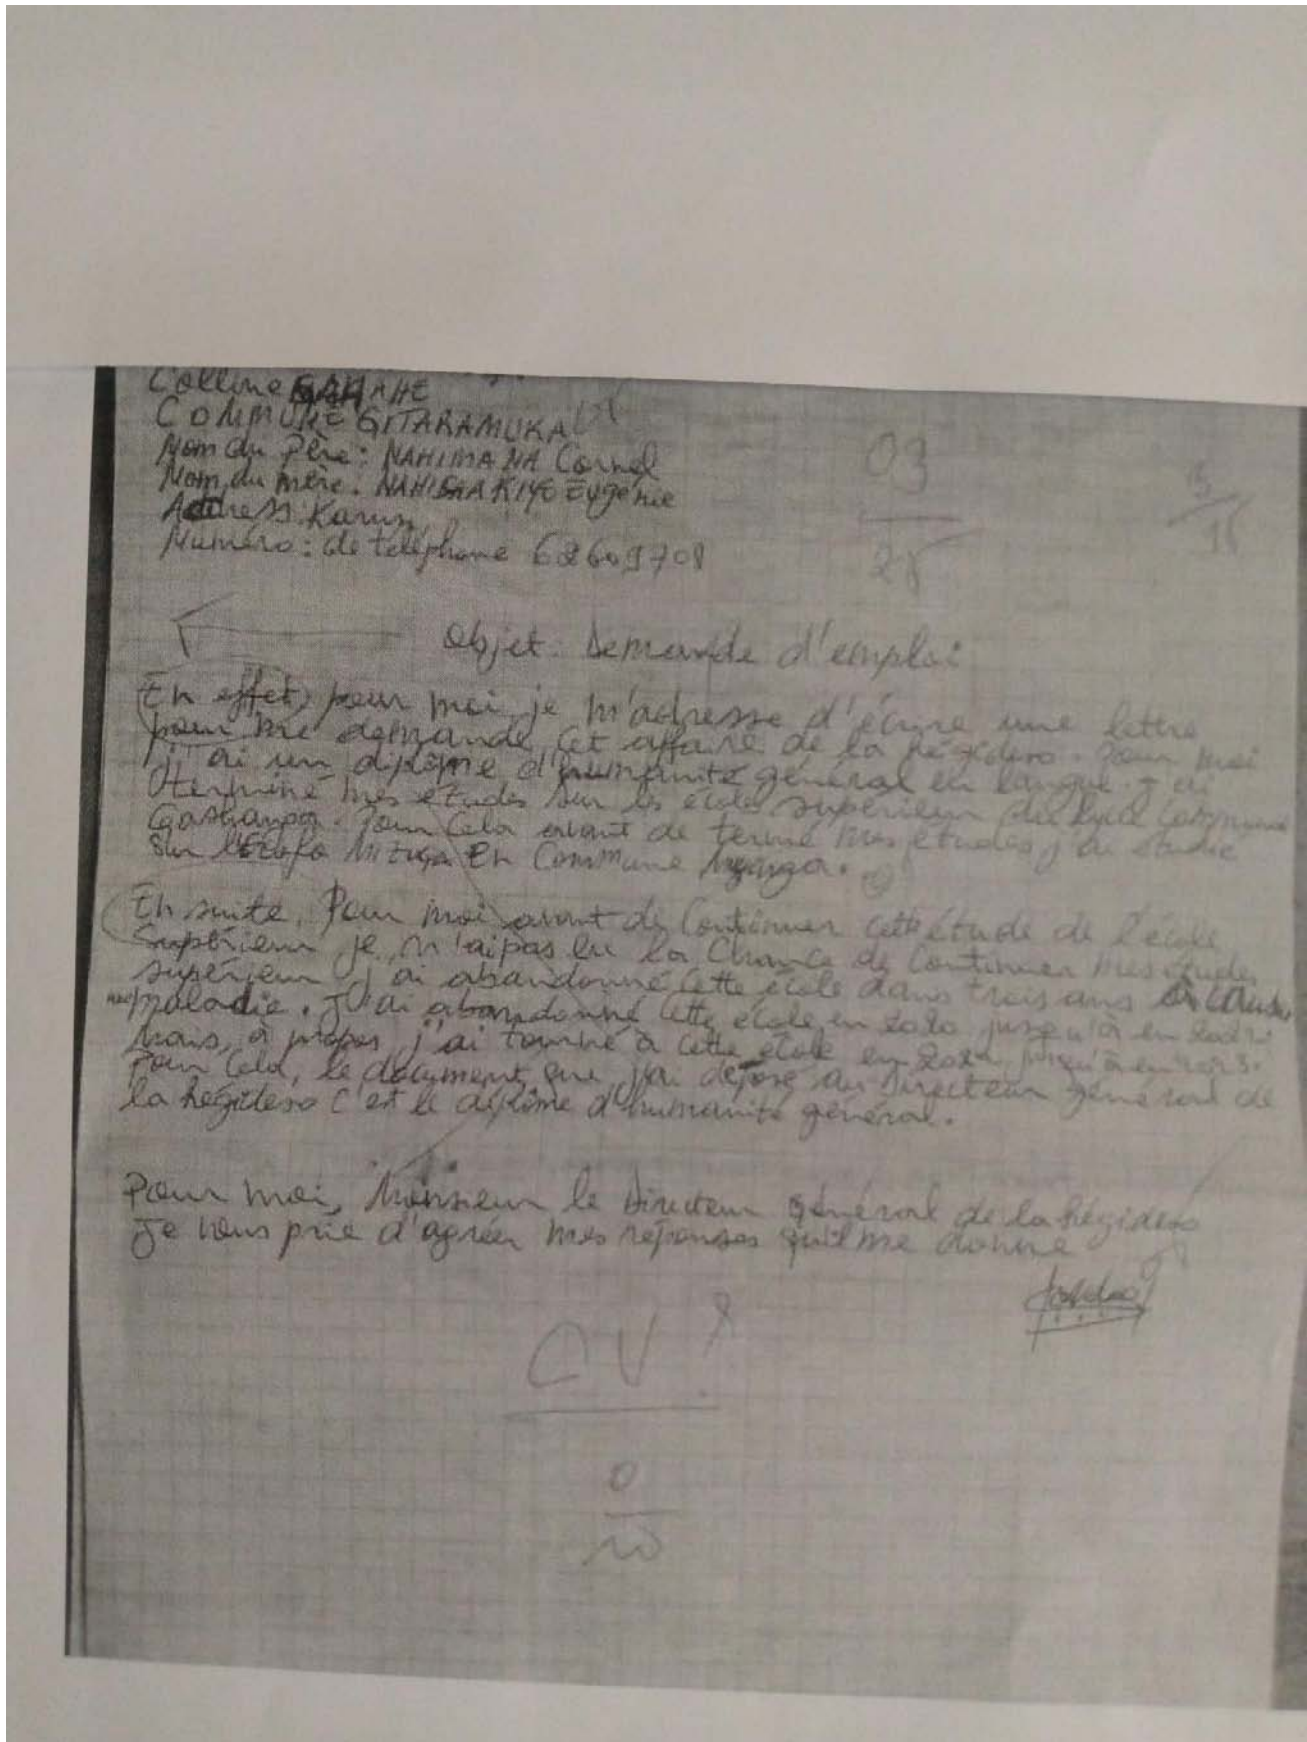 Colline GAHAHE
COMMUNE GITARAMUKA
Nom du Père: NAHIMANA Cornel
Nom du mère: Eugénie
Address: Karuzi
Numéro: de téléphone 62609708
03
28
3
18
Objet: Demande d'emploi
En effet, pour moi, je m'adresse d'écrire une lettre
pour me demande cet affaire de la Régideso. Pour moi
j'ai un diplôme d'humanité général en langue. J'ai
terminé mes études sur les école supérieur du lycé Communal
Pour cela avant de termé mes études j'ai étudié
sur En Commune
En suite, Pour moi avant de Continuer cette étude de l'école
Supérieur je n'aipas eu la Chance de Continuer mes études
supérieur j'ai abandonné cette école dans trois ans à cause
maladie. J'ai abandonné cette école en 2020 jusqu'à en
Mais, à propos j'ai tourné à cette école en jusqu'à en
Pour cela, le document que j'ai déposé au Directeur général de
la Régideso c'est le diplôme d'humanité général.
Pour moi, Monsieur le Directeur général de la Régideso
Je vous prie d'agréer mes réponses qu'il me donne
CV ?
0
10